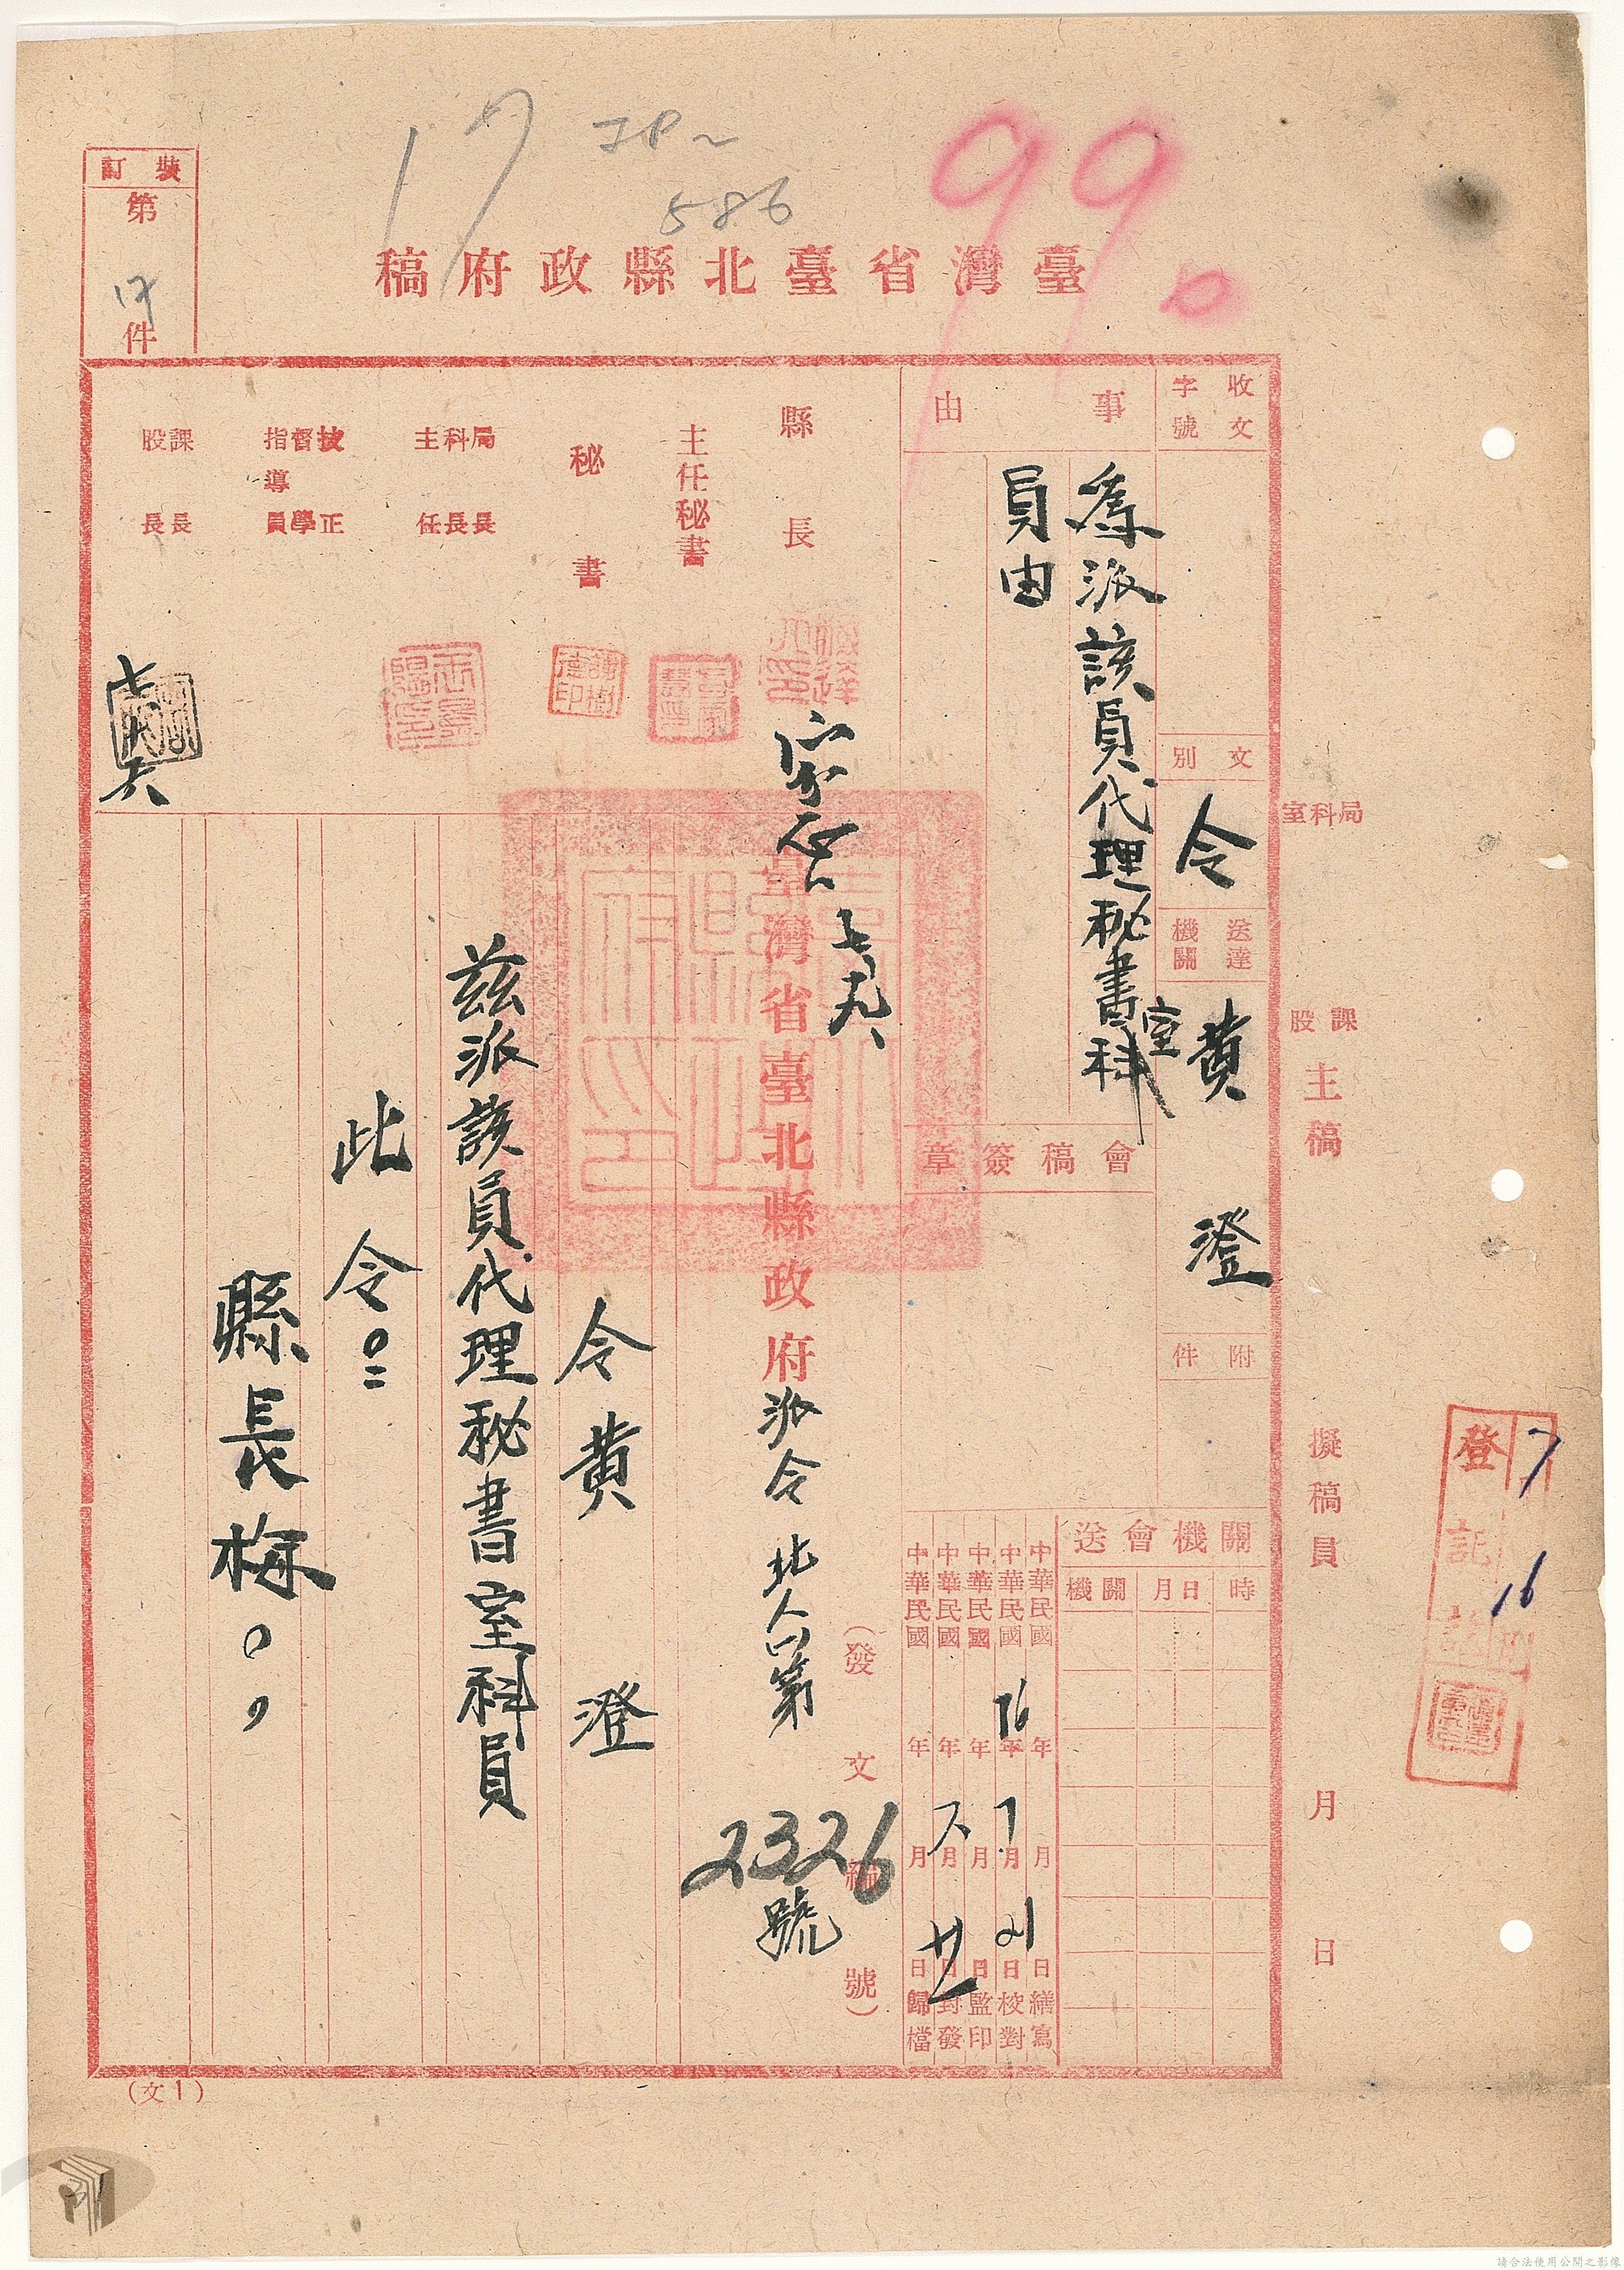 17
JP~
586
99
臺灣省臺北縣政府稿
裝訂
第
17
件
收文
字號
文別
令
送達
機關
黃澄
附件
事由
為派該員代理秘書科
室
員由
會稿簽章
送會機關
機關
月日
時
中華民國 年 月 日繕寫
中華民國36年7月21日校對
中華民國 年 月 日監印
中華民國 年 月 日封發
中華民國 年 月 日歸檔
縣長
主任秘書
秘書
局科主
長長任
技督指導
正學員
課股
長長
謝樹德印
七、十九、
臺灣省臺北縣政府
派令
北人
第
2326
號
(發文編號)
令黃澄
茲派該員代理秘書室科員
此令。
縣長梅。。
局科室
課股
主稿
擬稿員
月
日
登記
7
16
(文1)
請合法使用公開之影像